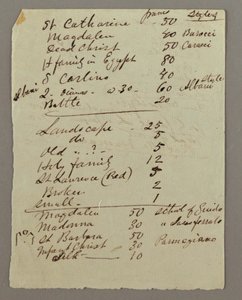 francs Stylers
St Catharine - 50
Magdalen 40 Barocci
Dead Christ 50 Caracci
H family in Egypt 80
S Carlino 40
Albani 2 - Dianas - @ 30 - 60 Style Albano
Battle 20
Landscape - 25
do 5
Old - ? - 5
Holy family 12
St Laurence (Red) 5
Broken 2
small - 1
Magdalen 50 School of Guido
Madonna 30 " Sassoferrato
St Barbara 50 Parmegiano
Infant Christ 30
Silk - 10